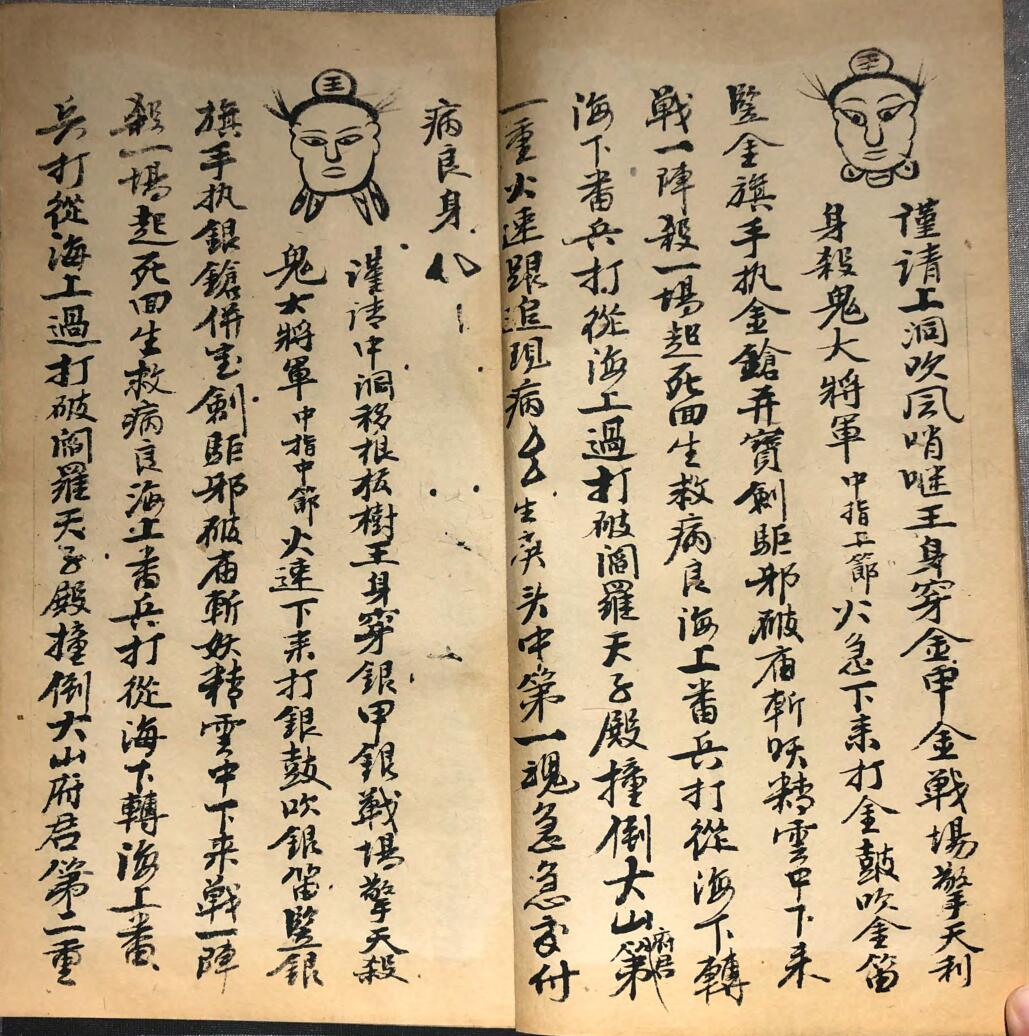 謹請上洞吹风哨啀王身穿金甲金戰場擎天利
身殺鬼大將軍中指上節火急下来打金鼓吹金笛
竪金旗手执金鎗弃寶劍駈邪破庙斬妖精雲中下来
战一陣殺一場起死回生救病良海上番兵打從海下轉
海下番兵打從海上過打破閻羅天子殿撞倒大山府君第
一重火速跟追現病生头中第一魂急急交付
病良身
謹請中洞移根拔樹王身穿銀甲銀戰場擎天殺
鬼大將軍中指中節火速下来打銀鼓吹銀笛竪銀
旗手执銀鎗併宝劍駈邪破庙斬妖精雲中下来戰一陣
殺一場起死回生救病良海上番兵打從海下轉海上番
兵打從海上過打破閻羅天子殿撞倒大山府君第二重
王